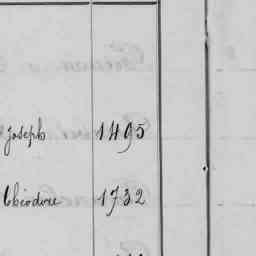 Joseph 1495
Théodore 1732